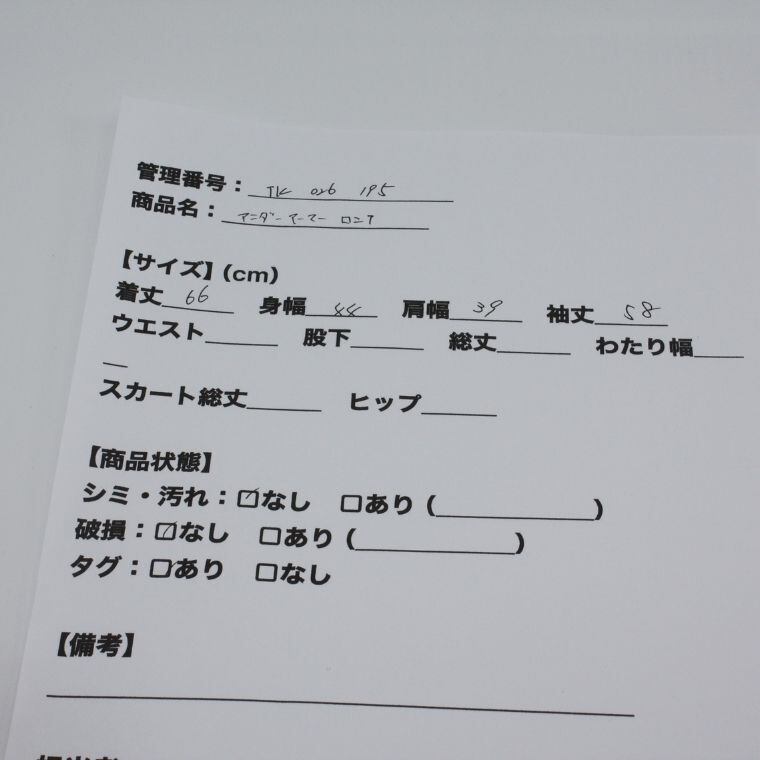 管理番号: TK 026 195
商品名: アンダーアーマー ロンT
【サイズ】(cm)
着丈 66 身幅 44 肩幅 39 袖丈 58
ウエスト 股下 総丈 わたり幅
スカート総丈 ヒップ
【商品状態】
シミ・汚れ:☑なし □あり( )
破損:☑なし □あり( )
タグ:☑あり □なし
【備考】